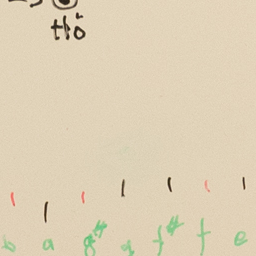 thỏ
b a g# g f# f e